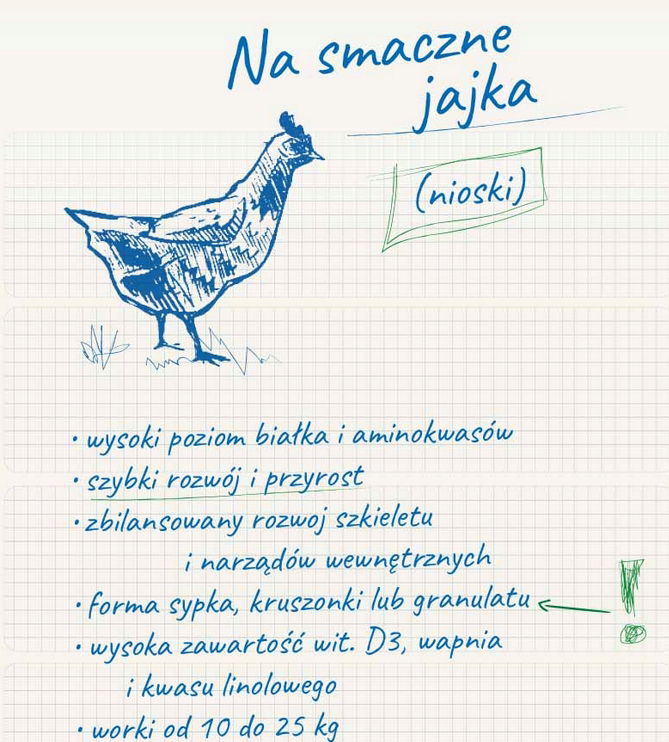 Na smaczne
jajka
(nioski)
• wysoki poziom białka i aminokwasów
• szybki rozwój i przyrost
• zbilansowany rozwoj szkieletu
i narządów wewnętrznych
• forma sypka, kruszonki lub granulatu
!
• wysoka zawartość wit. D3, wapnia
i kwasu linolowego
• worki od 10 do 25 kg